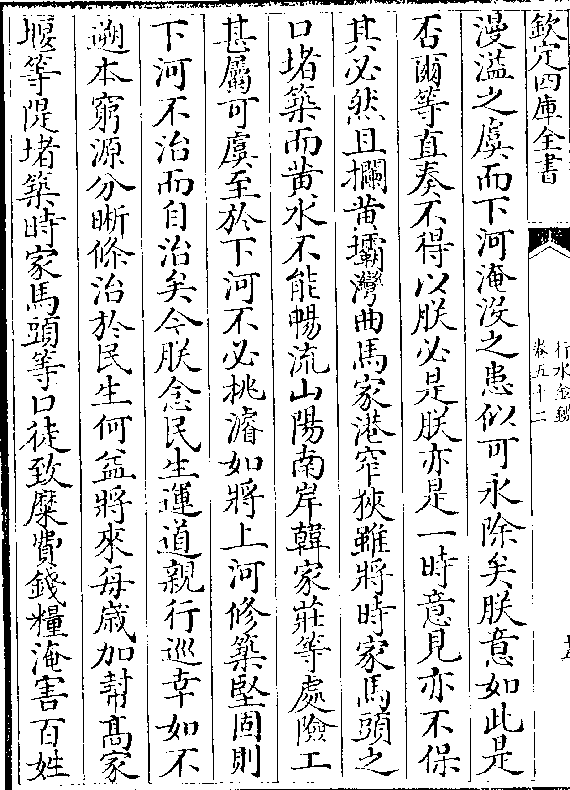 欽定四庫全書
行水金鑑
卷五十二
漫溢之虞而下河淹没之患似可永除矣朕意如此是
否爾等直奏不得以朕必是朕亦是一時意見亦不保
其必然且攔黄壩灣曲馬家港窄狹雖將時家馬頭之
口堵築而黄水不能暢流山陽南岸韓家莊等處險工
甚屬可虞至於下河不必挑濬如將上河修築堅固則
下河不治而自治矣今朕念民生運道親行巡幸如不
遡本窮源分晰條治於民生何益將來每歲加幇髙家
堰等隄堵築時家馬頭等口徒致糜費錢糧淹害百姓